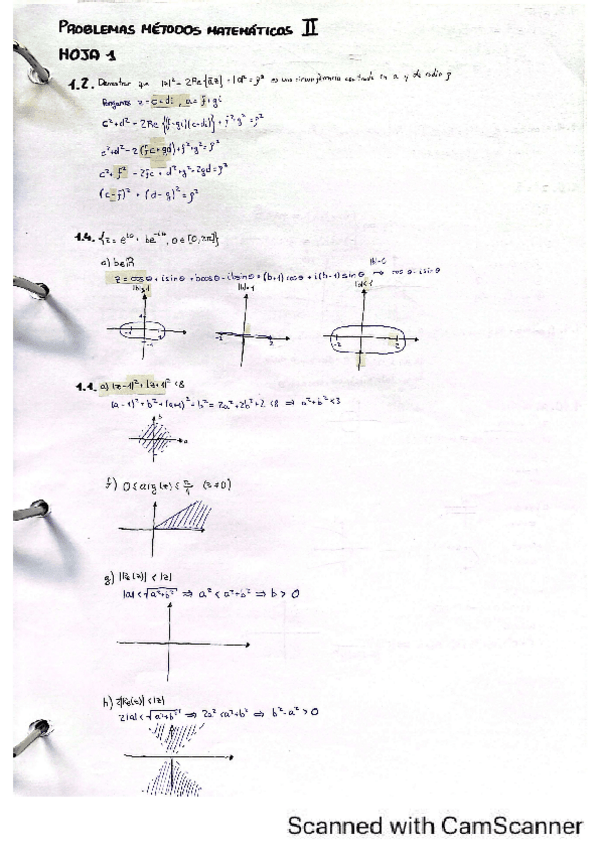 PROBLEMAS MÉTODOS MATEMÁTICOS II
HOJA 1
1.2. Demostrar que |z|² - 2Re{āz} + |a|² = ρ² es una circunferencia centrada en a y de radio ρ
z = c+di, a = f+gi
c²+d² - 2Re{(f-gi)(c+di)} + f²+g² = ρ²
c²+d² - 2(fc+gd) + f²+g² = ρ²
c² + f² - 2fc + d²+g² - 2gd = ρ²
(c-f)² + (d-g)² = ρ²
1.4. {z = e^{iθ} + be^{-iθ}, θ∈[0,2π]}
a) b∈ℝ
z = cosθ + isinθ + bcosθ - ibsinθ = (b+1)cosθ + i(b-1)sinθ
1.1. a) |z-1|² + |z+1|² < 8
(a-1)² + b² + (a+1)² + b² = 2a²+2b²+2 < 8 ⇒ a²+b² < 3
b
a
f) (z≠0)
g) |Re(z)| < |z|
|a| < √(a²+b²) ⇒ a² < a²+b² ⇒ b > 0
h) 2|Re(z)| < |z|
2|a| < √(a²+b²) ⇒ 2a² < a²+b² ⇒ b²-a² > 0
Scanned with CamScanner